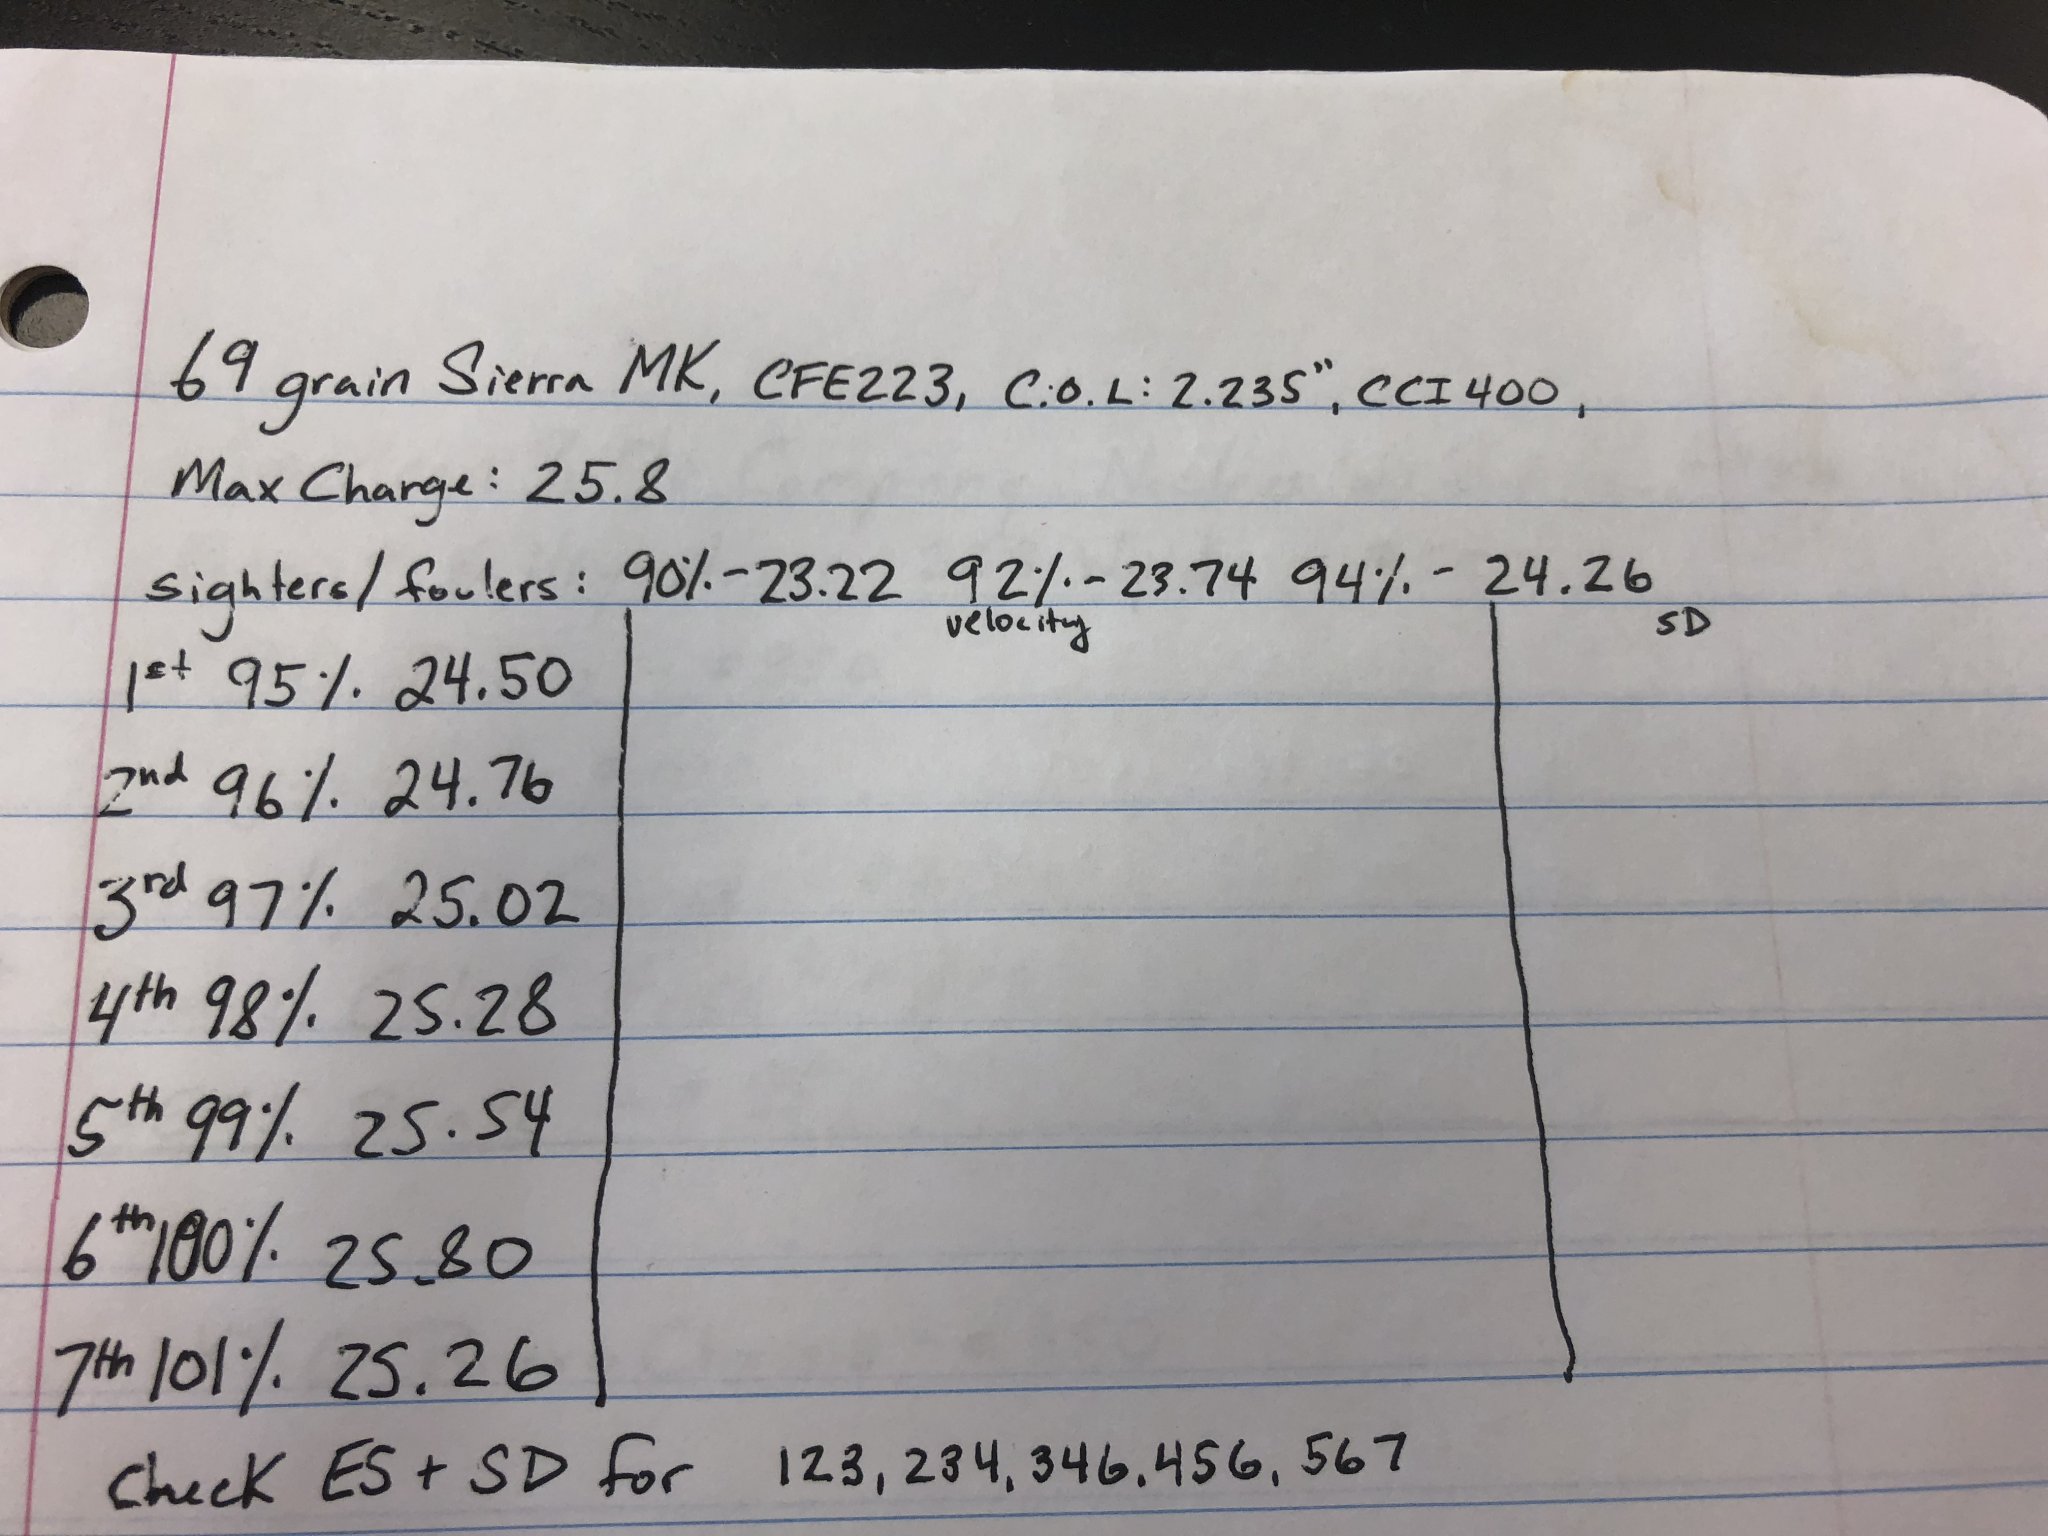 69 grain Sierra MK, CFE223, C.O.L: 2.235", CCI 400,
Max Charge: 25.8
sighters/foulers: 90%-23.22 92%-23.74 94%- 24.26
velocity SD
1st 95% 24.50
2nd 96% 24.76
3rd 97% 25.02
4th 98% 25.28
5th 99% 25.54
6th 100% 25.80
7th 101% 25.26
Check ES + SD for 123, 234, 346, 456, 567